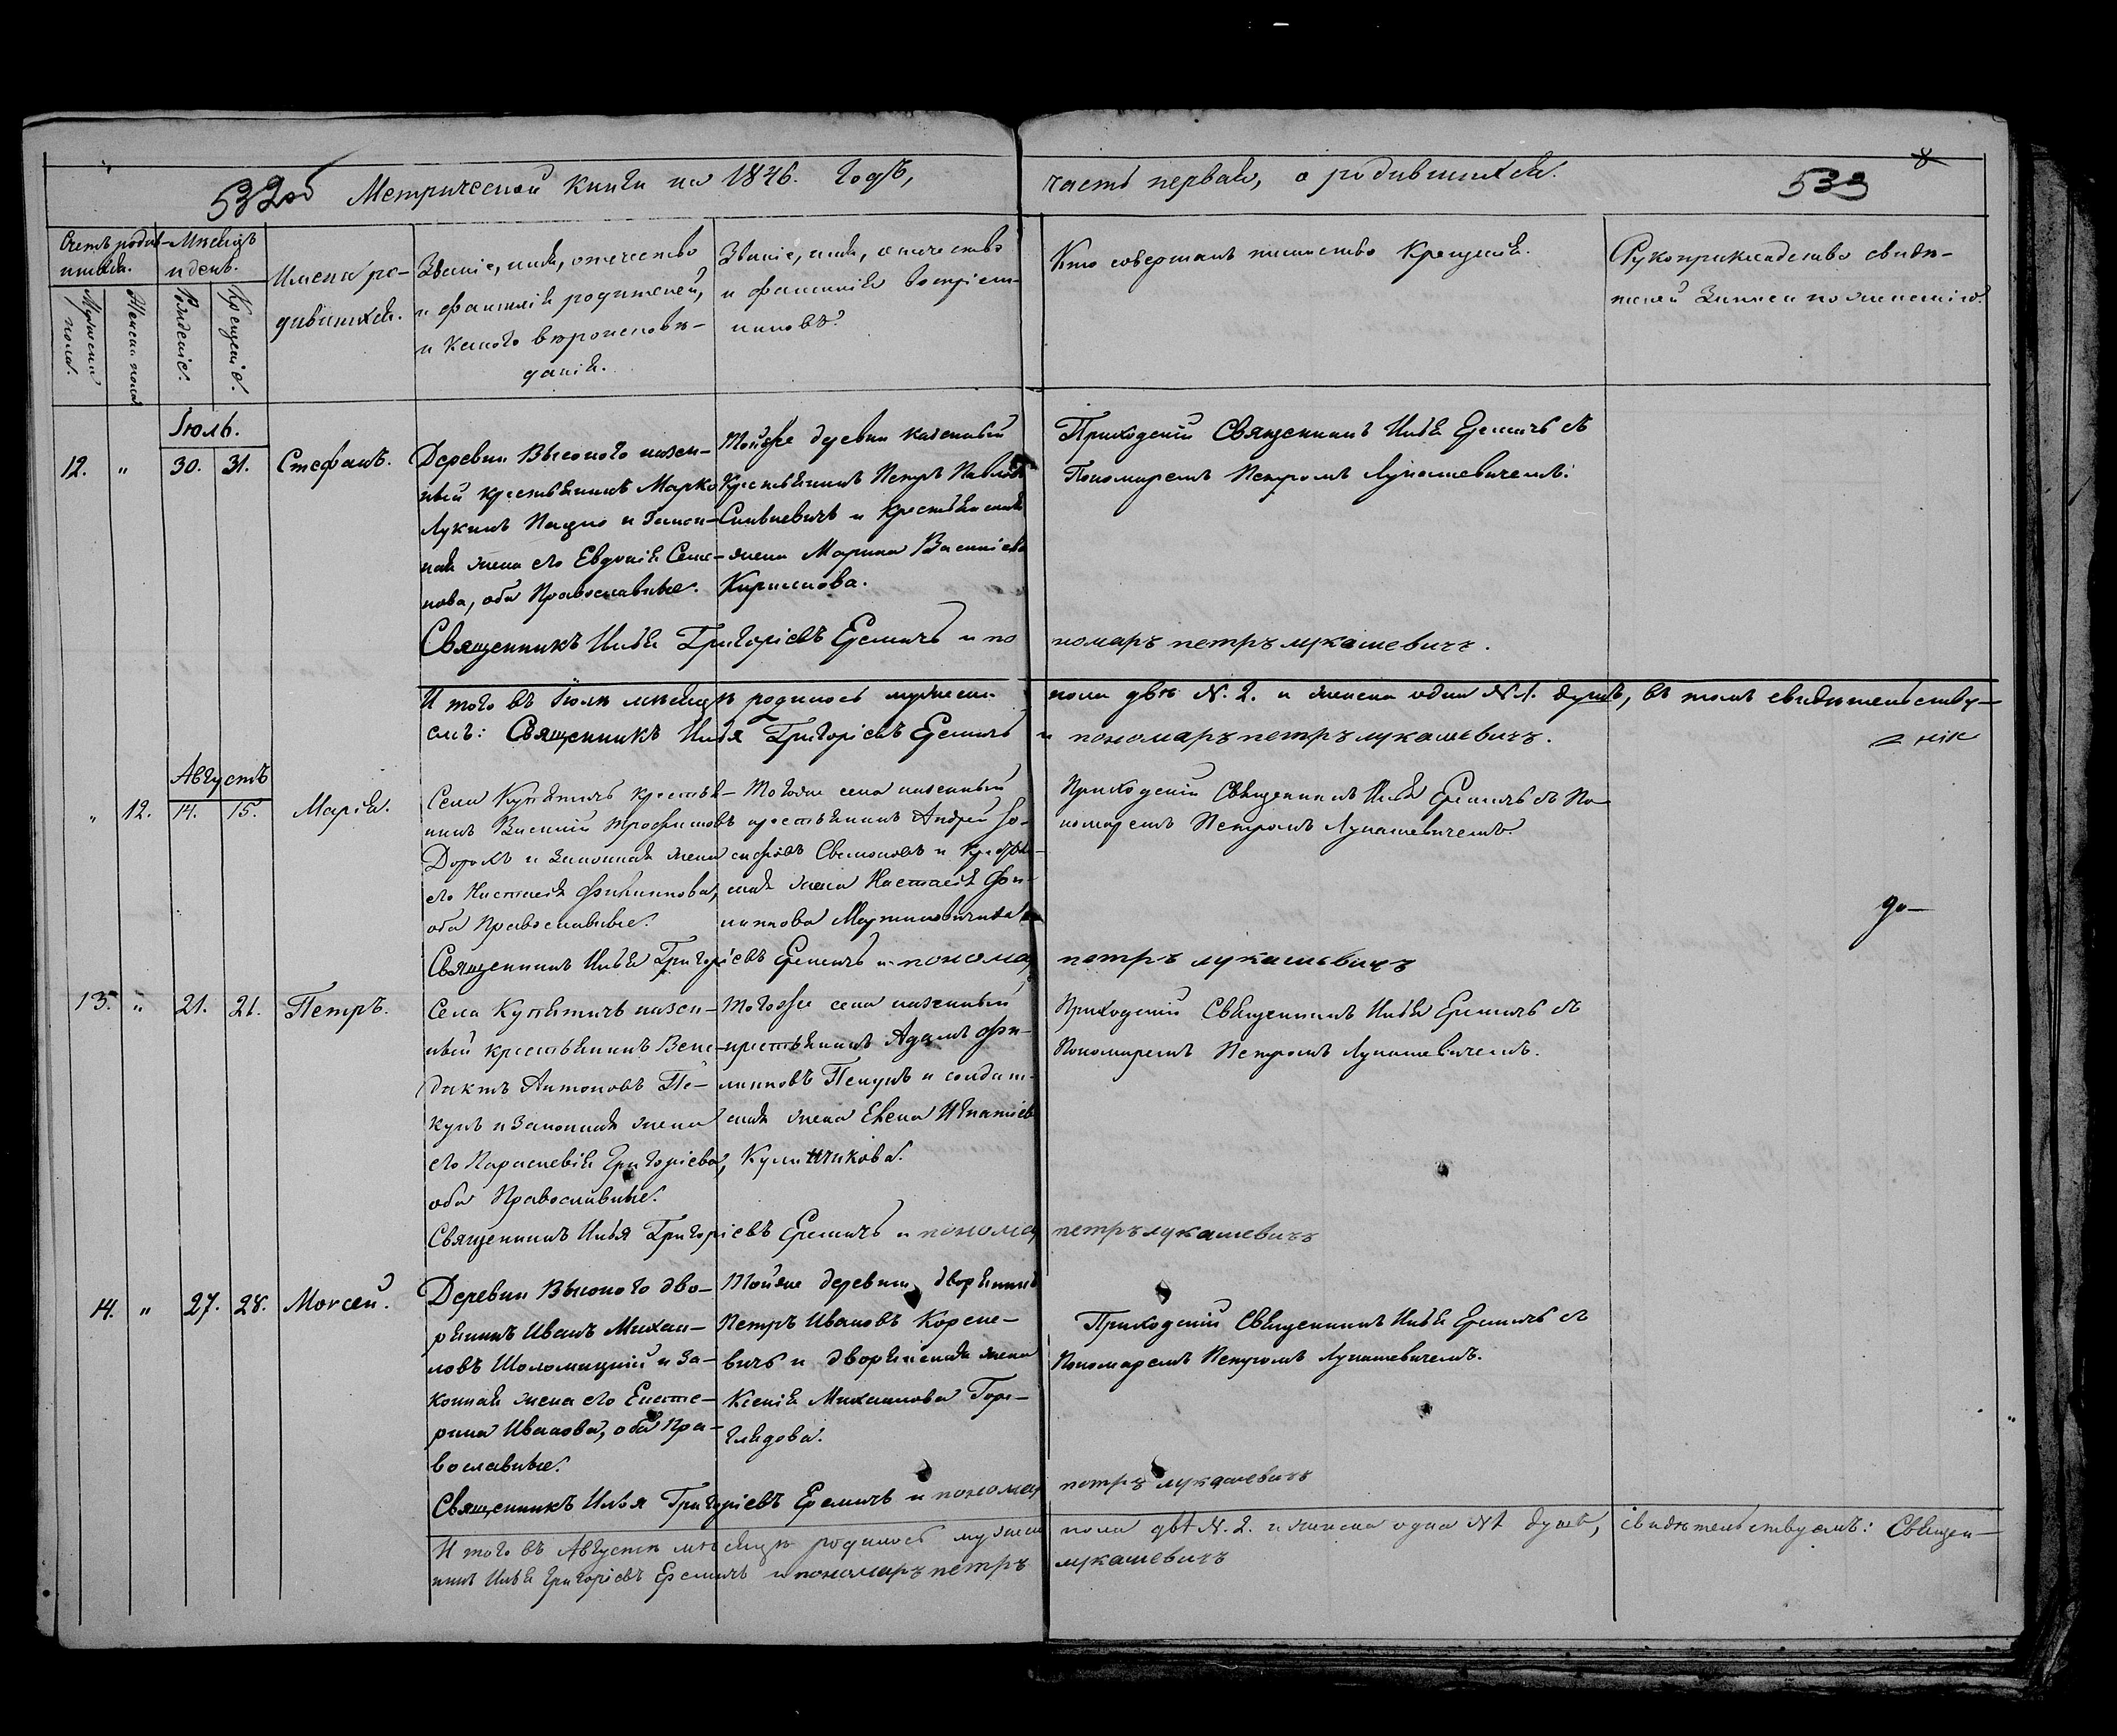 532об Метрической книги на 1846. годъ, часть первая, о родившихся. 533
8
Счетъ родив-
шихся.
Мѣсяцъ
и день.
Мужеска пола.
Женска пола.
Рожденіе.
Крещеніе.
Имена ро-
дившихся.
Званіе, имя, отчество
и фамилія родителей,
и какого вѣроисповѣ-
данія.
Званіе, имя, отчество
и фамилія воспріем-
никовъ.
Кто совершалъ таинство крещенія.
Рукоприкладство свидѣ-
телей записи по желанію.
Іюль.
12. " 30. 31. Стефанъ.
Деревни Высокого казен-
ный крестьянинъ Марко
Лукинъ Пацно и закон-
ная жена его Евдокія Семе-
нова, оба Православные.
Тойже деревни казенный
Крестьянинъ Петръ Павловъ
и крестьянская
жена Марина Василіева
Кирилова.
Приходскій Священникъ Илья Еремичъ съ
Пономаремъ Петромъ Лукашевичемъ.
Священникъ Илья Григоріевъ Еремичъ и пономаръ петръ лукашевичъ.
И того въ Іюлѣ мѣсяцѣ родилось мужеска пола двѣ N. 2. и женска одна N 1. душъ, въ томъ свидѣтельству-
емъ: Священникъ Илья Григоріевъ Еремичъ и пономаръ петръ лукашевичъ.
Августъ
" 12. 14. 15. Марія.
Села Купятичъ крестья-
нинъ Василій Трофимовъ
Дорохъ и законная жена
его Настасія Филиппова,
оба Православные.
Тогоже села казенный
крестьянинъ Андрей Іо-
сифовъ и крестьян-
ская жена Настасія Фи-
липпова Мартиновичова
Приходскій Священникъ Илья Еремичъ съ По-
номаремъ Петромъ Лукашевичемъ.
до-
Священникъ Илья Григоріевъ Еремичъ и пономар петръ лукашевичъ
13. " 21. 21. Петръ.
Села Купятичъ казен-
ный крестьянинъ Вене-
диктъ Антоновъ Пе-
кунъ и законная жена
его Параскевія Григоріева,
оба Православные.
Тогоже села казенный
крестьянинъ Адамъ Фи-
липповъ Пекунъ и солдат-
ская жена Елена Игнатіева
Приходскій Священникъ Илья Еремичъ съ
Пономаремъ Петромъ Лукашевичемъ.
Священникъ Илья Григоріевъ Еремичъ и пономар петръ лукашевичъ
14. " 27. 28. Моѵсей.
Деревни Высокого дво-
рянинъ Иванъ Михаи-
ловъ Шоломицкій и за-
конная жена его Екате-
рина Иванова, оба Пра-
вославные.
Тойже деревни дворянинъ
Петръ Ивановъ Корсне-
вичъ и дворянская жена
Ксенія Михаилова Гор-
глядова.
Приходскій Священникъ Илья Еремичъ съ
Пономаремъ Петромъ Лукашевичемъ.
Священникъ Илья Григоріевъ Еремичъ и пономар петръ лукашевичъ
И того въ Августѣ мѣсяцѣ родилось мужеска пола двѣ N. 2. и женска одна N 1 душъ, свидѣтельствуемъ: Священ-
никъ Илья Григоріевъ Еремичъ и пономаръ петръ лукашевичъ